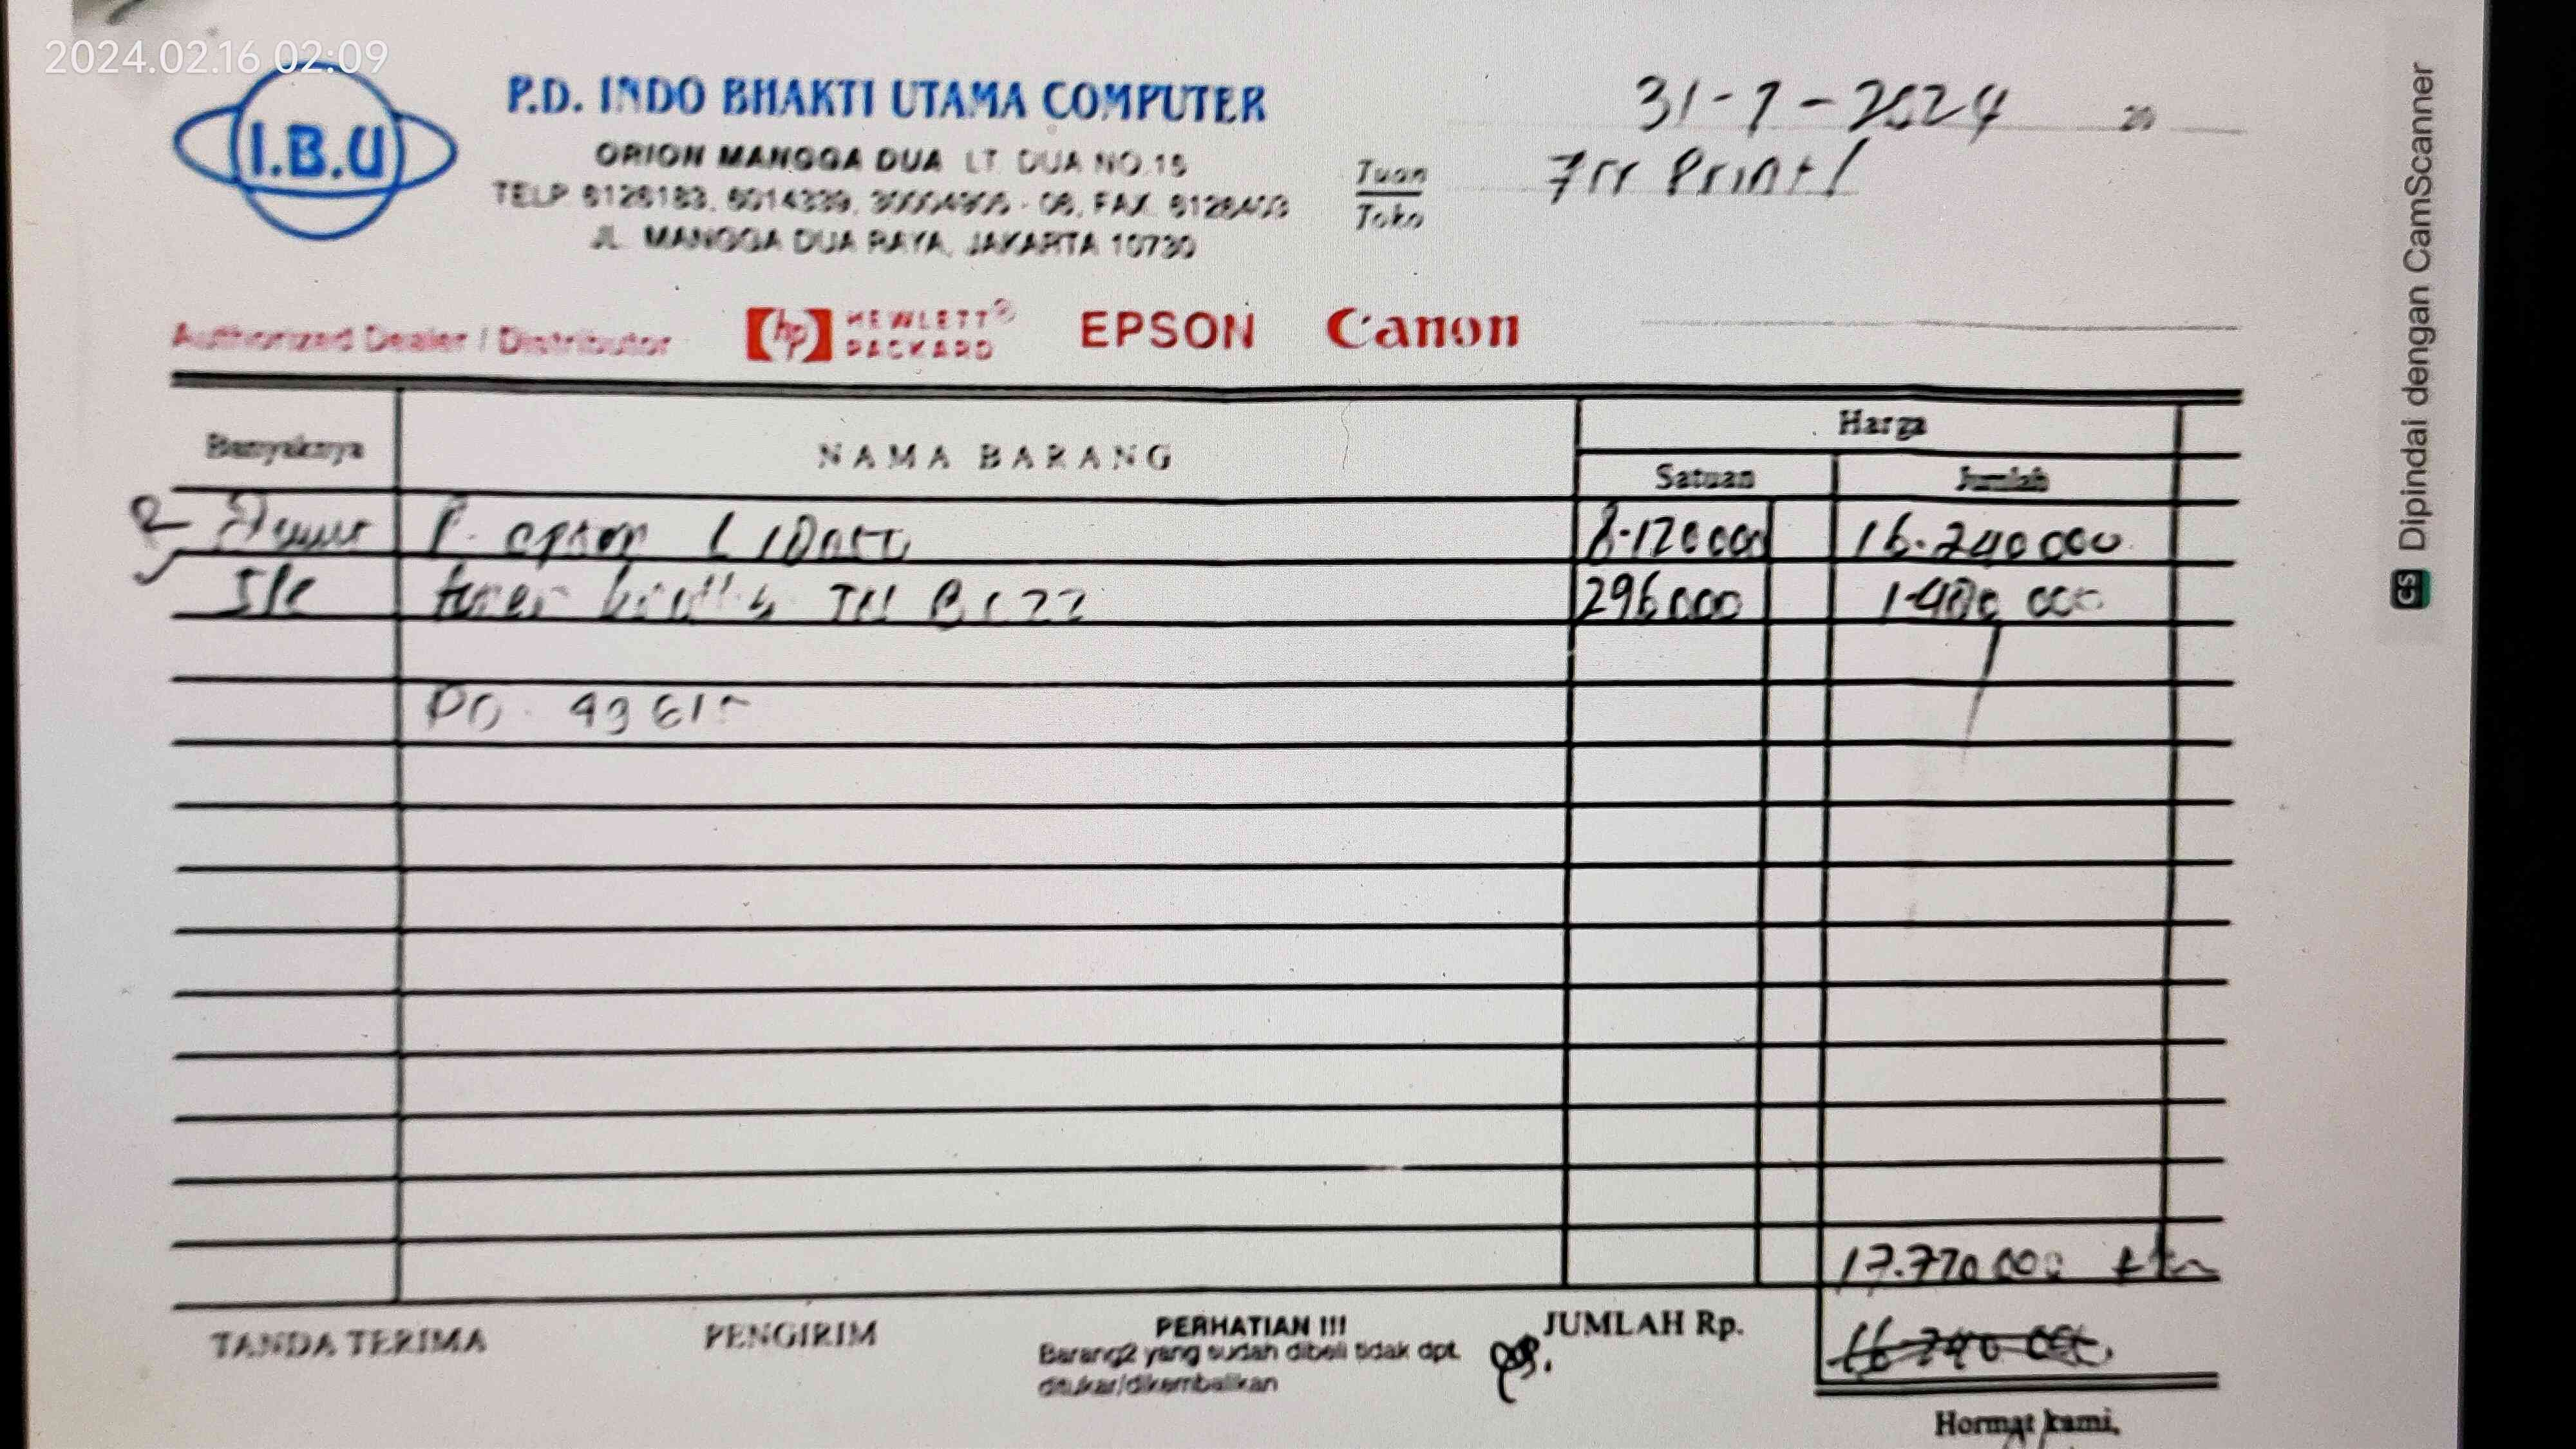 2024.02.16 02:09
I.B.U
P.D. INDO BHAKTI UTAMA COMPUTER
ORION MANGGA DUA LT. DUA NO.15
TELP. 6126183, FAX.
JL. MANGGA DUA RAYA, JAKARTA 10730
31-1-2024 20
Tuan
Toko
Print
Authorized Dealer / Distributor
hp HEWLETT® PACKARD
EPSON
Canon
Banyaknya
NAMA BARANG
Harga
Satuan
Jumlah
2 P. epson 8.120000 16.240000
toner 296000 1.480 000
PO.
17.720000
TANDA TERIMA
PENGIRIM
PERHATIAN !!!
Barang2 yang sudah dibeli tidak dpt.
ditukar/dikembalikan
JUMLAH Rp.
16 240 000
Hormat kami,
CS Dipindai dengan CamScanner